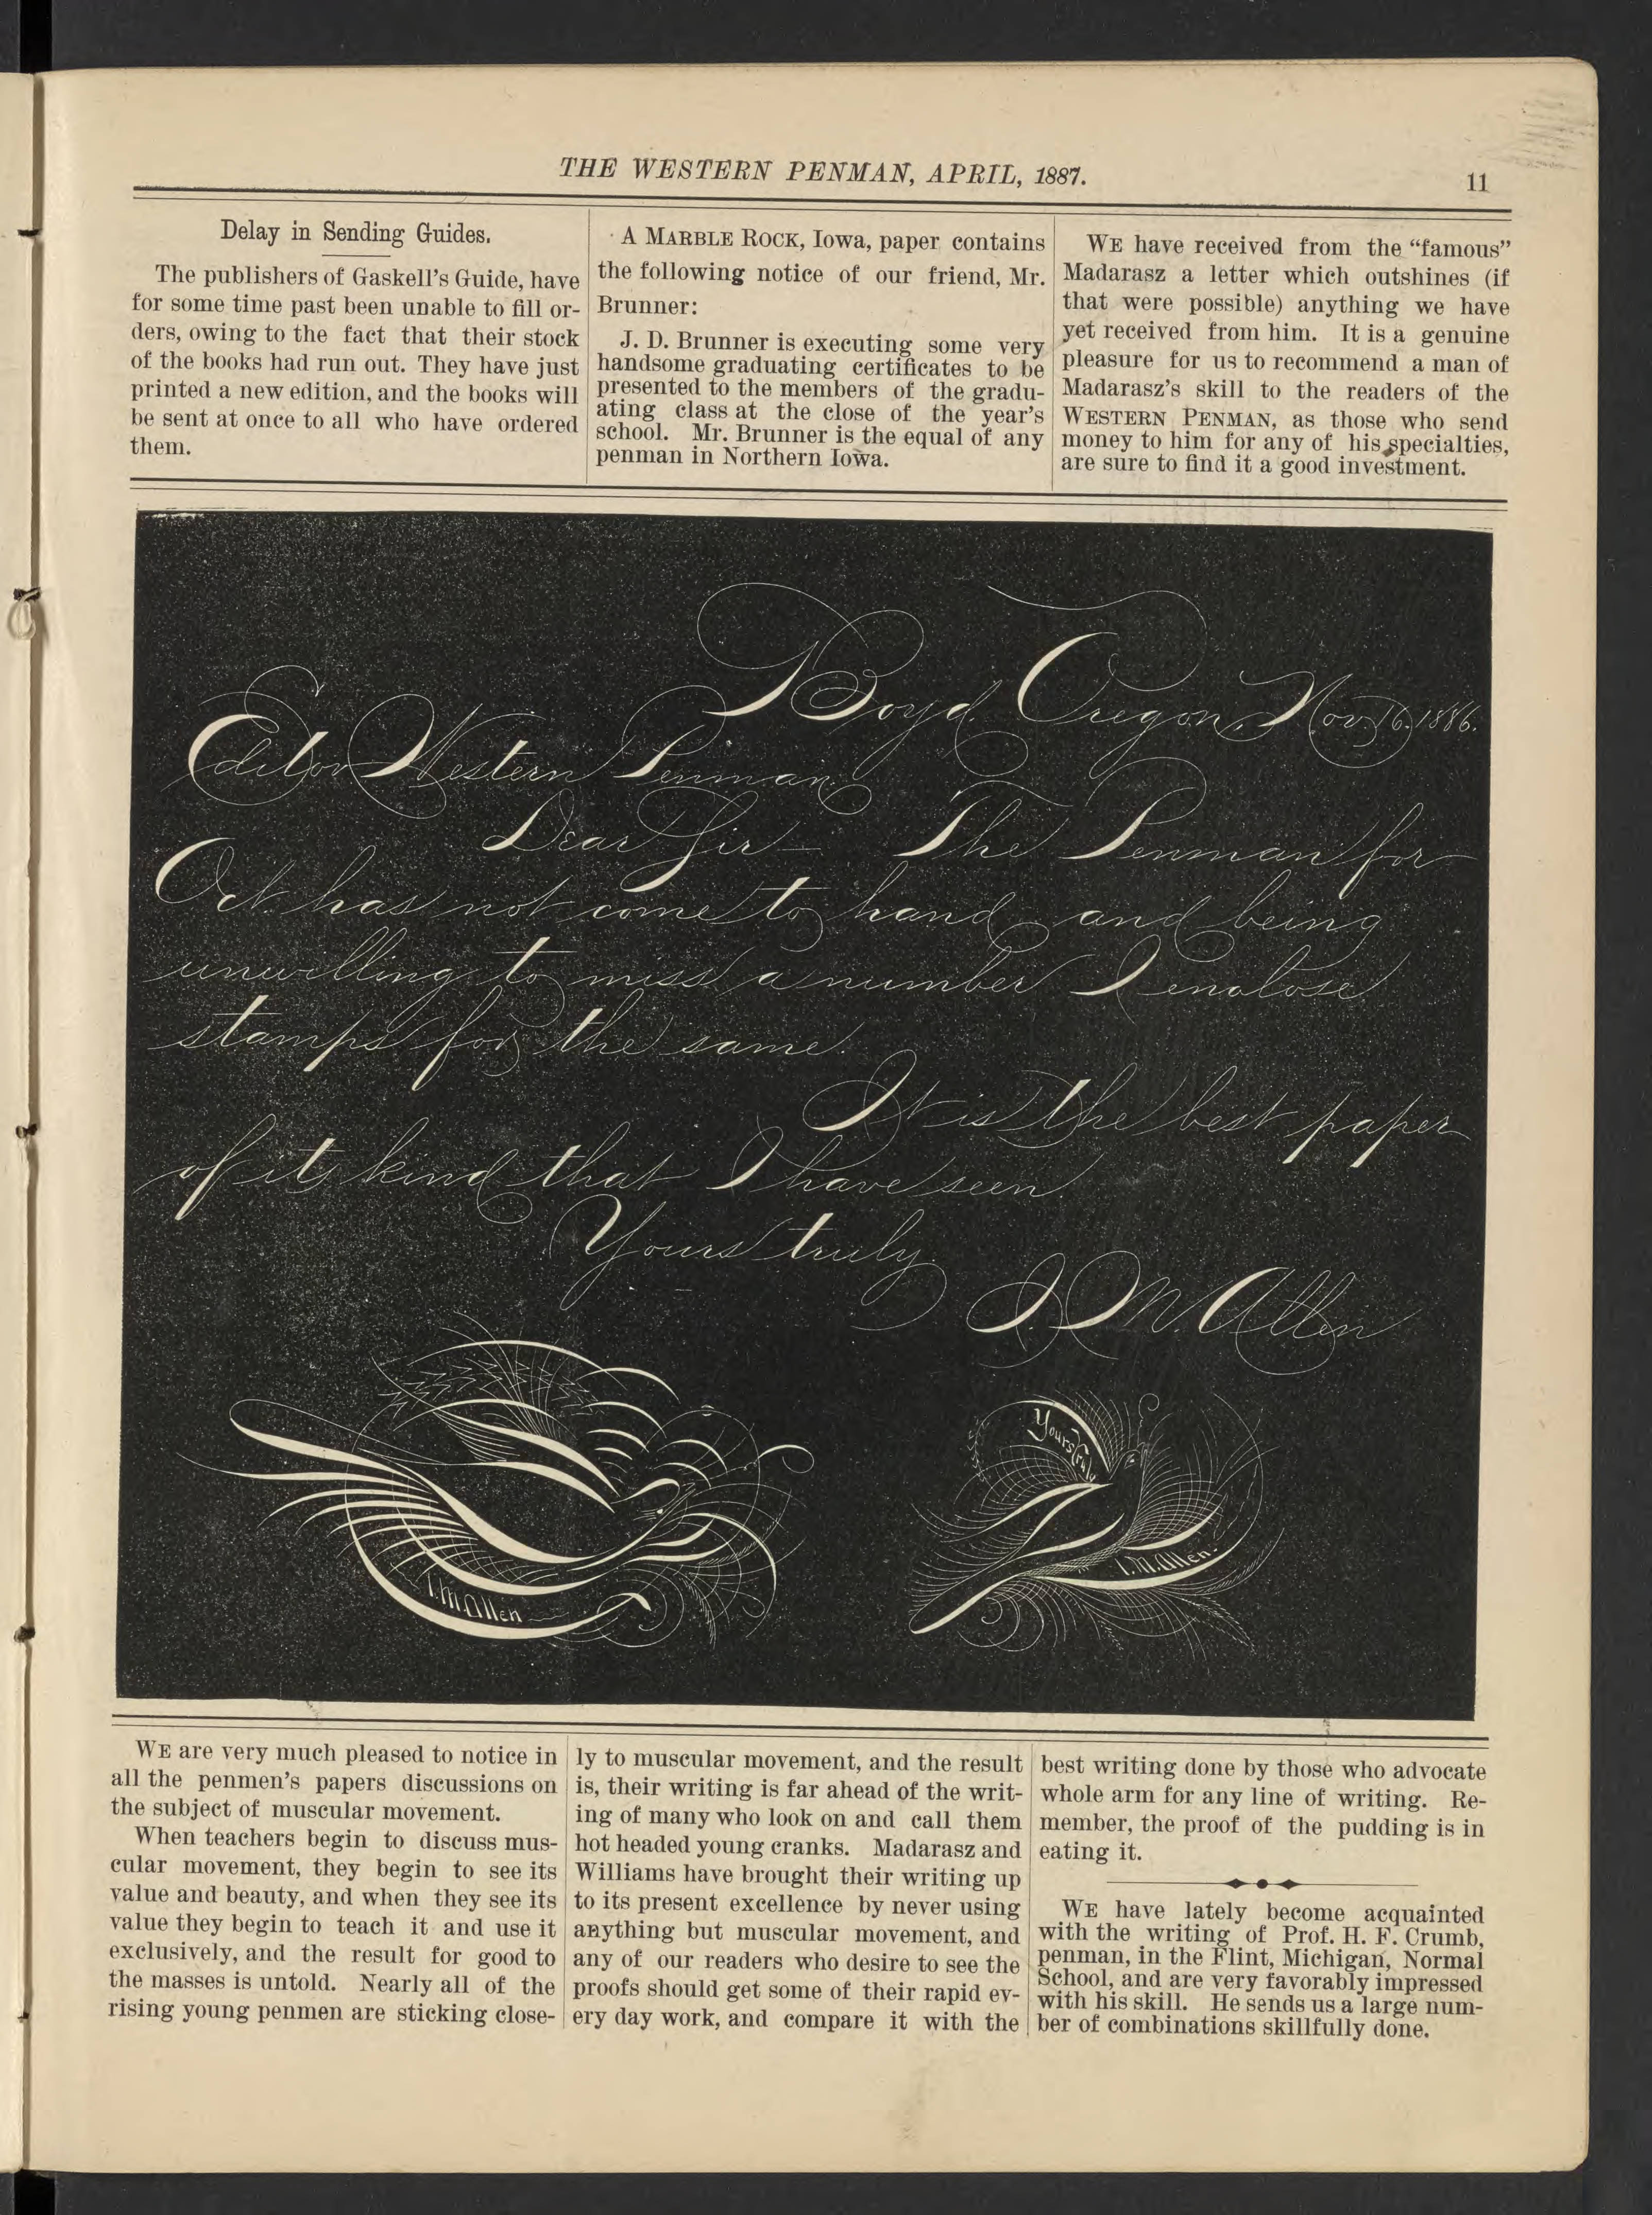 THE WESTERN PENMAN, APRIL, 1887.
11
Delay in Sending Guides.
The publishers of Gaskell's Guide, have
for some time past been unable to fill or-
ders, owing to the fact that their stock
of the books had run out. They have just
printed a new edition, and the books will
be sent at once to all who have ordered
them.
A MARBLE ROCK, Iowa, paper contains
the following notice of our friend, Mr.
Brunner:
J. D. Brunner is executing some very
handsome graduating certificates to be
presented to the members of the gradu-
ating class at the close of the year's
school. Mr. Brunner is the equal of any
penman in Northern Iowa.
WE have received from the “famous”
Madarasz a letter which outshines (if
that were possible) anything we have
yet received from him. It is a genuine
pleasure for us to recommend a man of
Madarasz's skill to the readers of the
WESTERN PENMAN, as those who send
money to him for any of his specialties,
are sure to find it a good investment.
Boyd. Oregon, Nov. 16. 1886.
Editor Western Penman.
Dear Sir— The Penman for
Oct. has not come to hand and being
unwilling to miss a number I enclose
stamps for the same.
It is the best paper
of its kind that I have seen.
Yours truly.
I. M. Allen
Yours truly
I. M. Allen
I. M. Allen.
WE are very much pleased to notice in
all the penmen's papers discussions on
the subject of muscular movement.
When teachers begin to discuss mus-
cular movement, they begin to see its
value and beauty, and when they see its
value they begin to teach it and use it
exclusively, and the result for good to
the masses is untold. Nearly all of the
rising young penmen are sticking close-
ly to muscular movement, and the result
is, their writing is far ahead of the writ-
ing of many who look on and call them
hot headed young cranks. Madarasz and
Williams have brought their writing up
to its present excellence by never using
anything but muscular movement, and
any of our readers who desire to see the
proofs should get some of their rapid ev-
ery day work, and compare it with the
best writing done by those who advocate
whole arm for any line of writing. Re-
member, the proof of the pudding is in
eating it.
WE have lately become acquainted
with the writing of Prof. H. F. Crumb,
penman, in the Flint, Michigan, Normal
School, and are very favorably impressed
with his skill. He sends us a large num-
ber of combinations skillfully done.